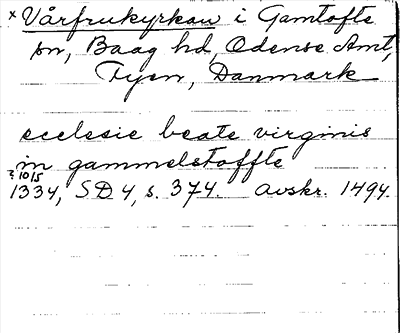 × Vårfrukyrkan i Gamtofte
sn, Baag hd, Odense Amt,
Fyen, Danmark
ecclesie beate virginis
in gammelstoffte
? 10/5
1334, SD 4, s. 374. Avskr. 1494.